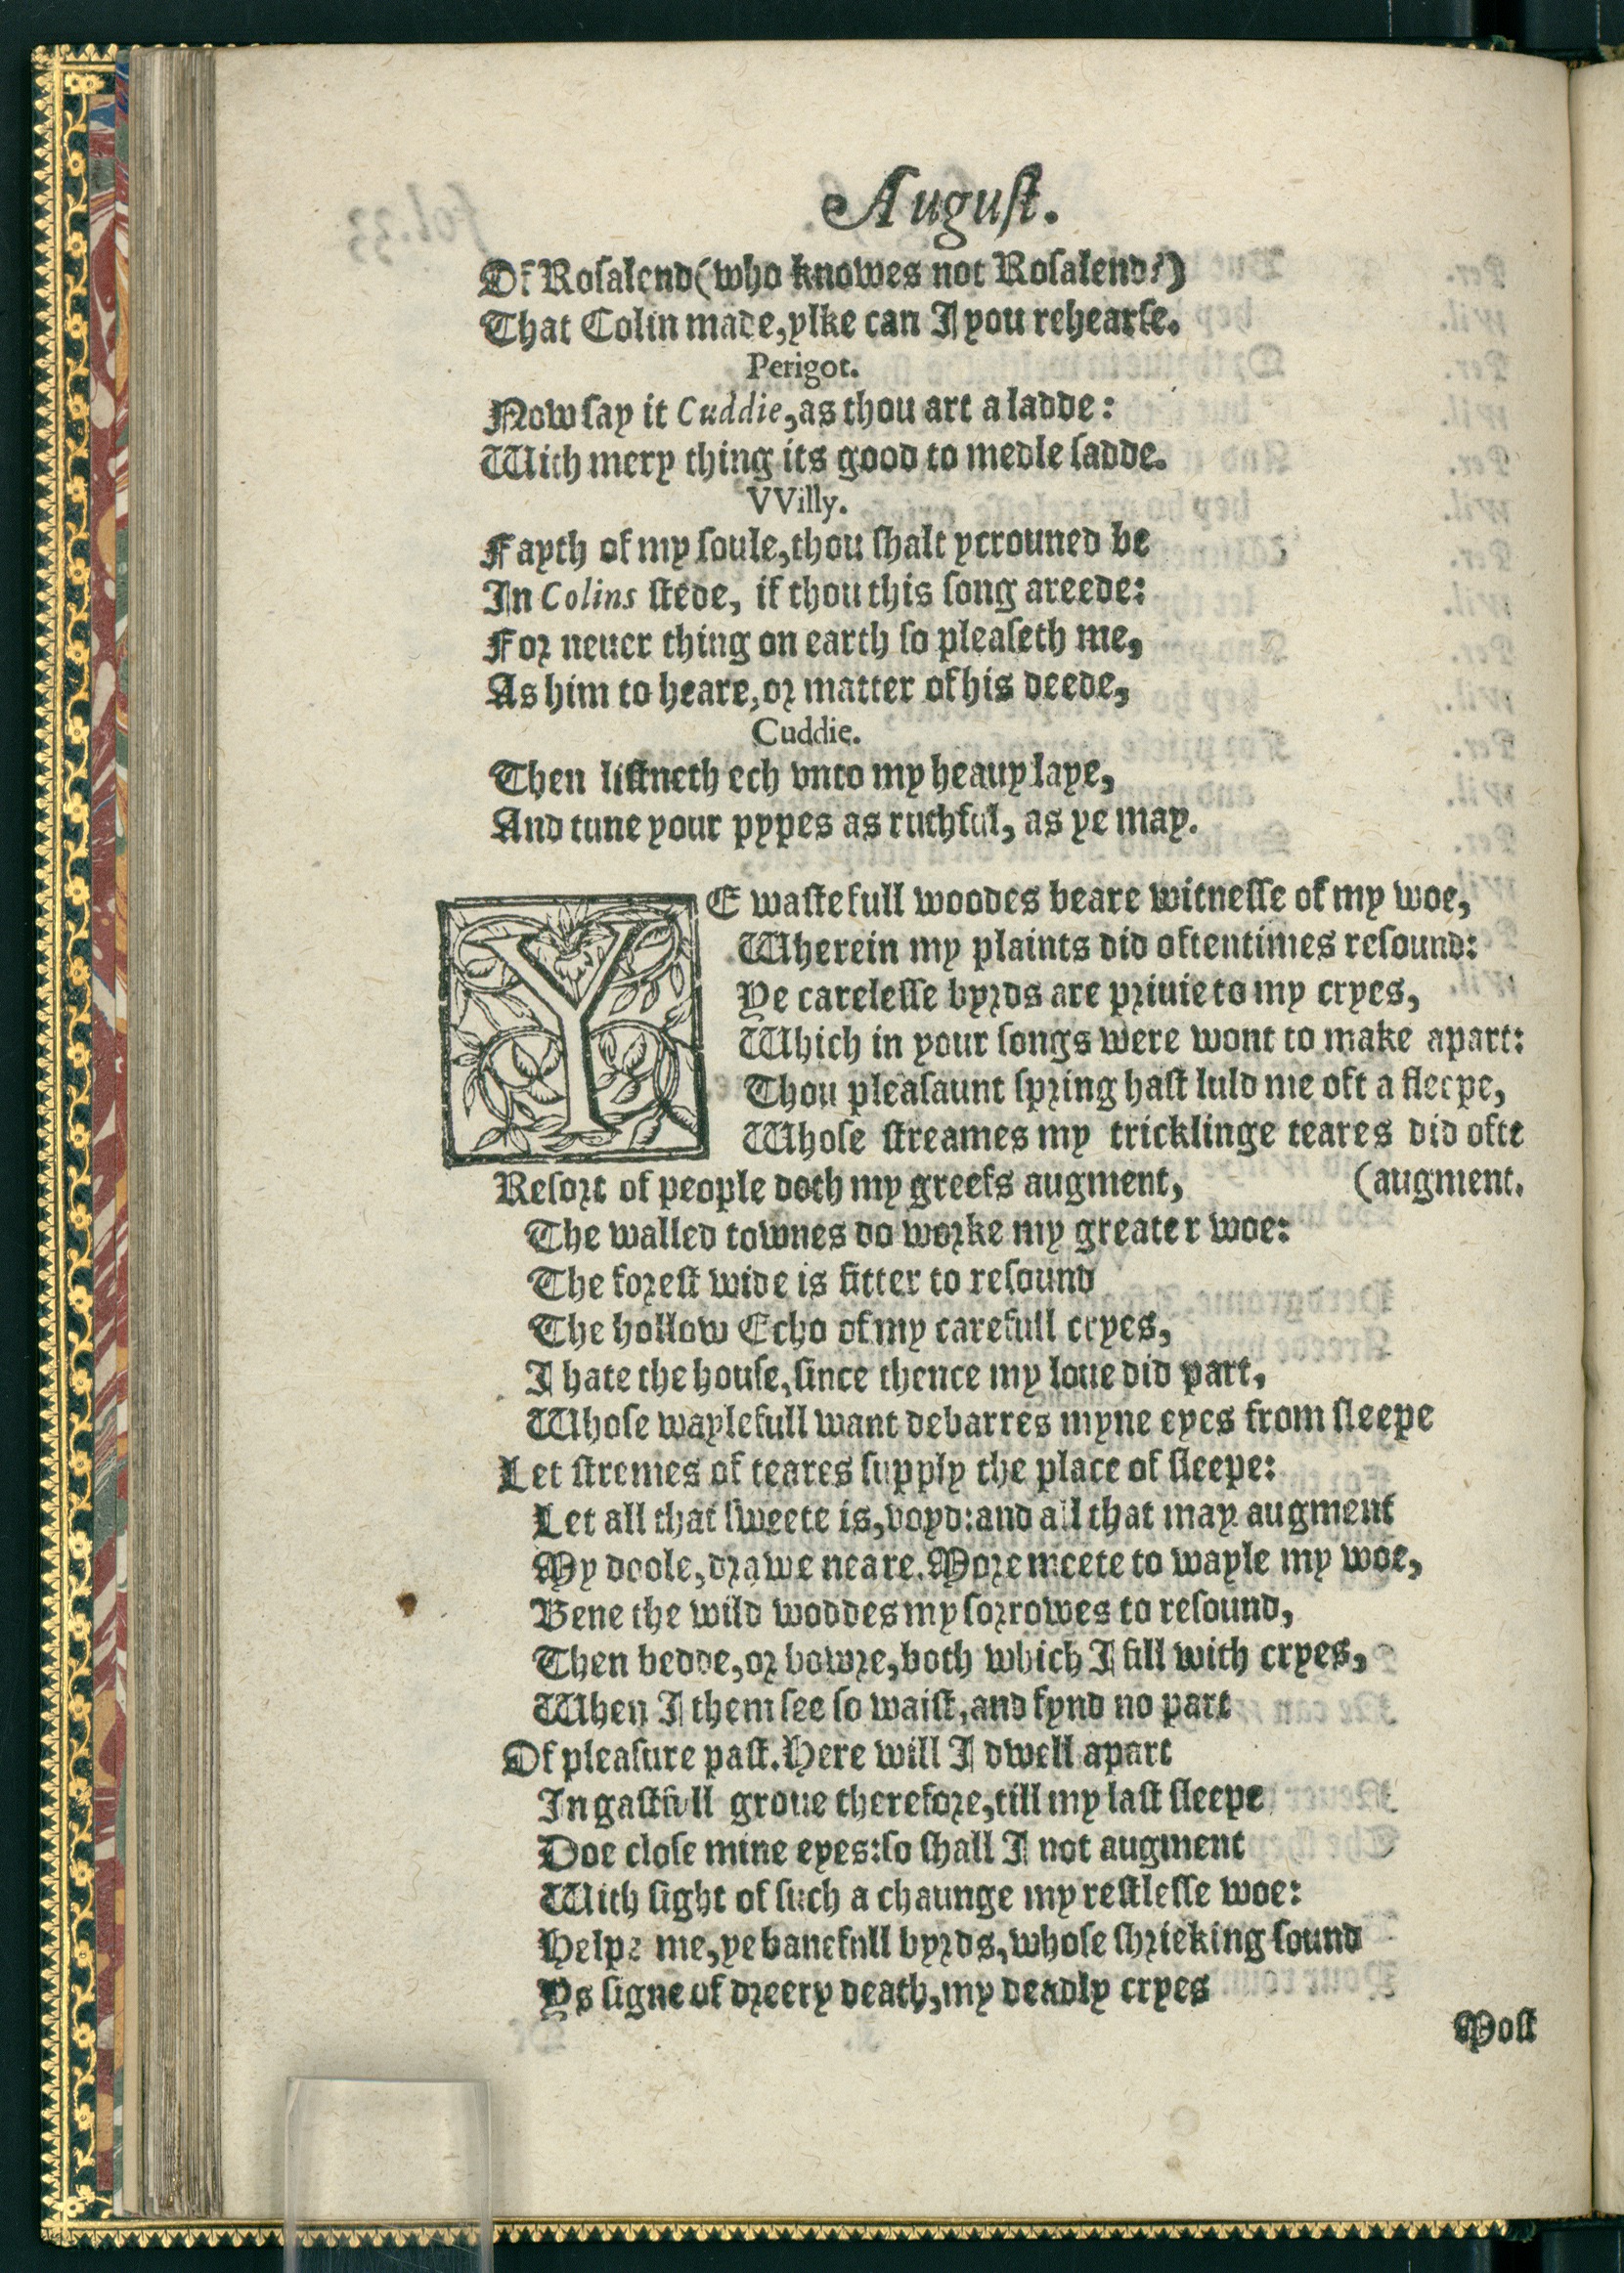 August.
Of Rosalend (who knowes not Rosalend?)
That Colin made, ylke can I you rehearse.
Perigot.
Now say it Cuddie, as thou art a ladde:
With mery thing its good to medle sadde.
VVilly.
Fayth of my soule, thou shalt ycrouned be
In Colins stede, if thou this song areede:
For neuer thing on earth so pleaseth me,
As him to heare, or matter of his deede,
Cuddie.
Then listneth ech vnto my heauy laye,
And tune your pypes as ruthful, as ye may.
YE wastefull woodes beare witnesse of my woe,
Wherein my plaints did oftentimes resound:
Ye carelesse byrds are priuie to my cryes,
Which in your songs were wont to make apart:
Thou pleasaunt spring hast luld me oft a sleepe,
Whose streames my tricklinge teares did ofte
(augment.
Resort of people doth my greefs augment,
The walled townes do worke my greater woe:
The forest wide is fitter to resound
The hollow Echo of my carefull cryes,
I hate the house, since thence my loue did part,
Whose waylefull want debarres myne eyes from sleepe
Let stremes of teares supply the place of sleepe:
Let all that sweete is, voyd: and all that may augment
My doole, drawe neare. More meete to wayle my woe,
Bene the wild woddes my sorrowes to resound,
Then bedde, or bowre, both which I fill with cryes,
When I them see so waist, and fynd no part
Of pleasure past. Here will I dwell apart
In gastfull groue therefore, till my last sleepe
Doe close mine eyes: so shall I not augment
With sight of such a chaunge my restlesse woe:
Helpe me, ye banefull byrds, whose shrieking sound
Ys signe of dreery death, my deadly cryes
Most